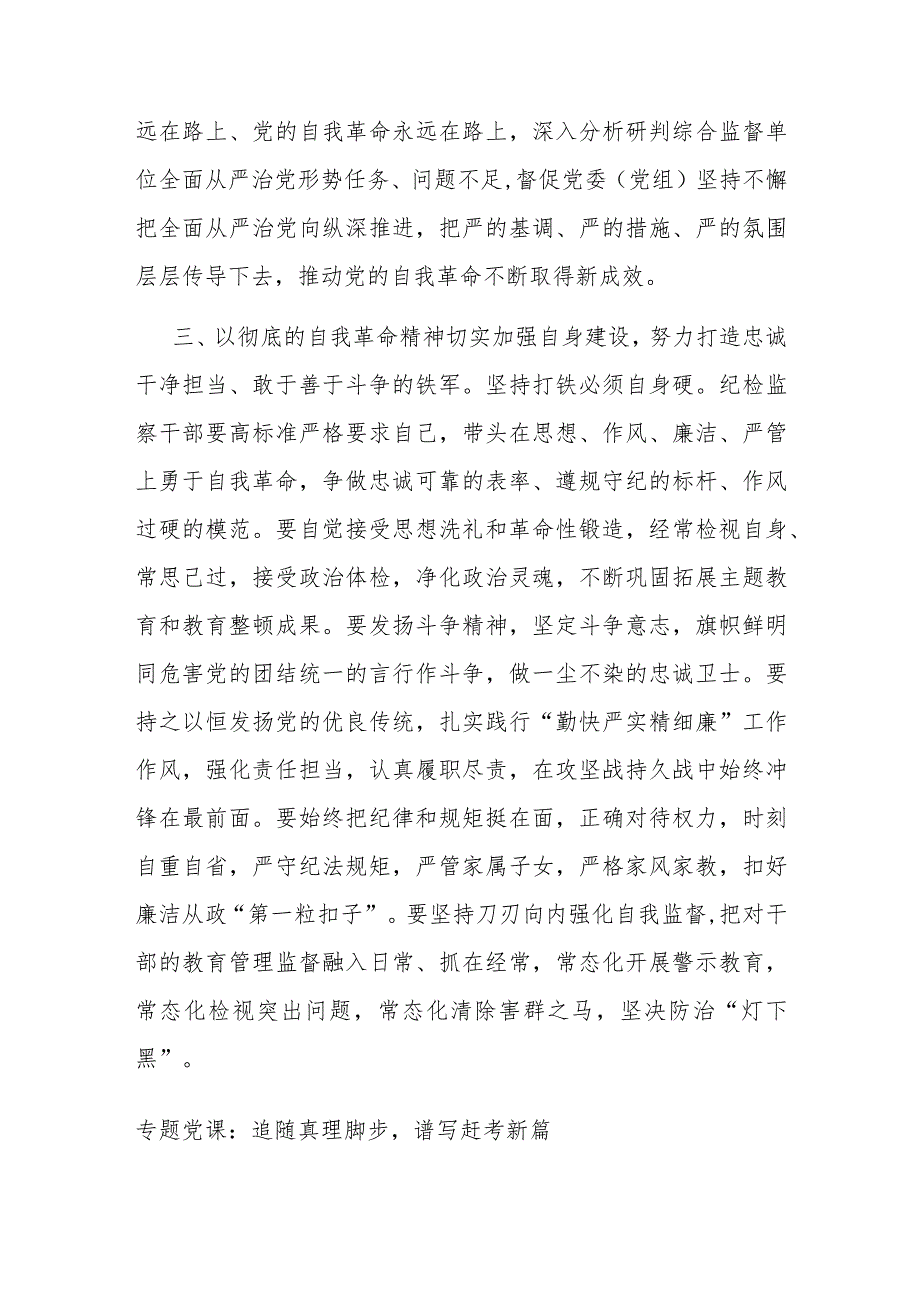 远在路上、党的自我革命永远在路上，深入分析研判综合监督单
位全面从严治党形势任务、问题不足,督促党委（党组）坚持不懈
把全面从严治党向纵深推进，把严的基调、严的措施、严的氛围
层层传导下去，推动党的自我革命不断取得新成效。
三、以彻底的自我革命精神切实加强自身建设，努力打造忠诚
干净担当、敢于善于斗争的铁军。坚持打铁必须自身硬。纪检监
察干部要高标准严格要求自己，带头在思想、作风、廉洁、严管
上勇于自我革命，争做忠诚可靠的表率、遵规守纪的标杆、作风
过硬的模范。要自觉接受思想洗礼和革命性锻造，经常检视自身、
常思己过，接受政治体检，净化政治灵魂，不断巩固拓展主题教
育和教育整顿成果。要发扬斗争精神，坚定斗争意志，旗帜鲜明
同危害党的团结统一的言行作斗争，做一尘不染的忠诚卫士。要
持之以恒发扬党的优良传统，扎实践行“勤快严实精细廉”工作
作风，强化责任担当，认真履职尽责，在攻坚战持久战中始终冲
锋在最前面。要始终把纪律和规矩挺在面，正确对待权力，时刻
自重自省，严守纪法规矩，严管家属子女，严格家风家教，扣好
廉洁从政“第一粒扣子”。要坚持刀刃向内强化自我监督,把对干
部的教育管理监督融入日常、抓在经常，常态化开展警示教育，
常态化检视突出问题，常态化清除害群之马，坚决防治“灯下
黑”。
专题党课：追随真理脚步，谱写赶考新篇